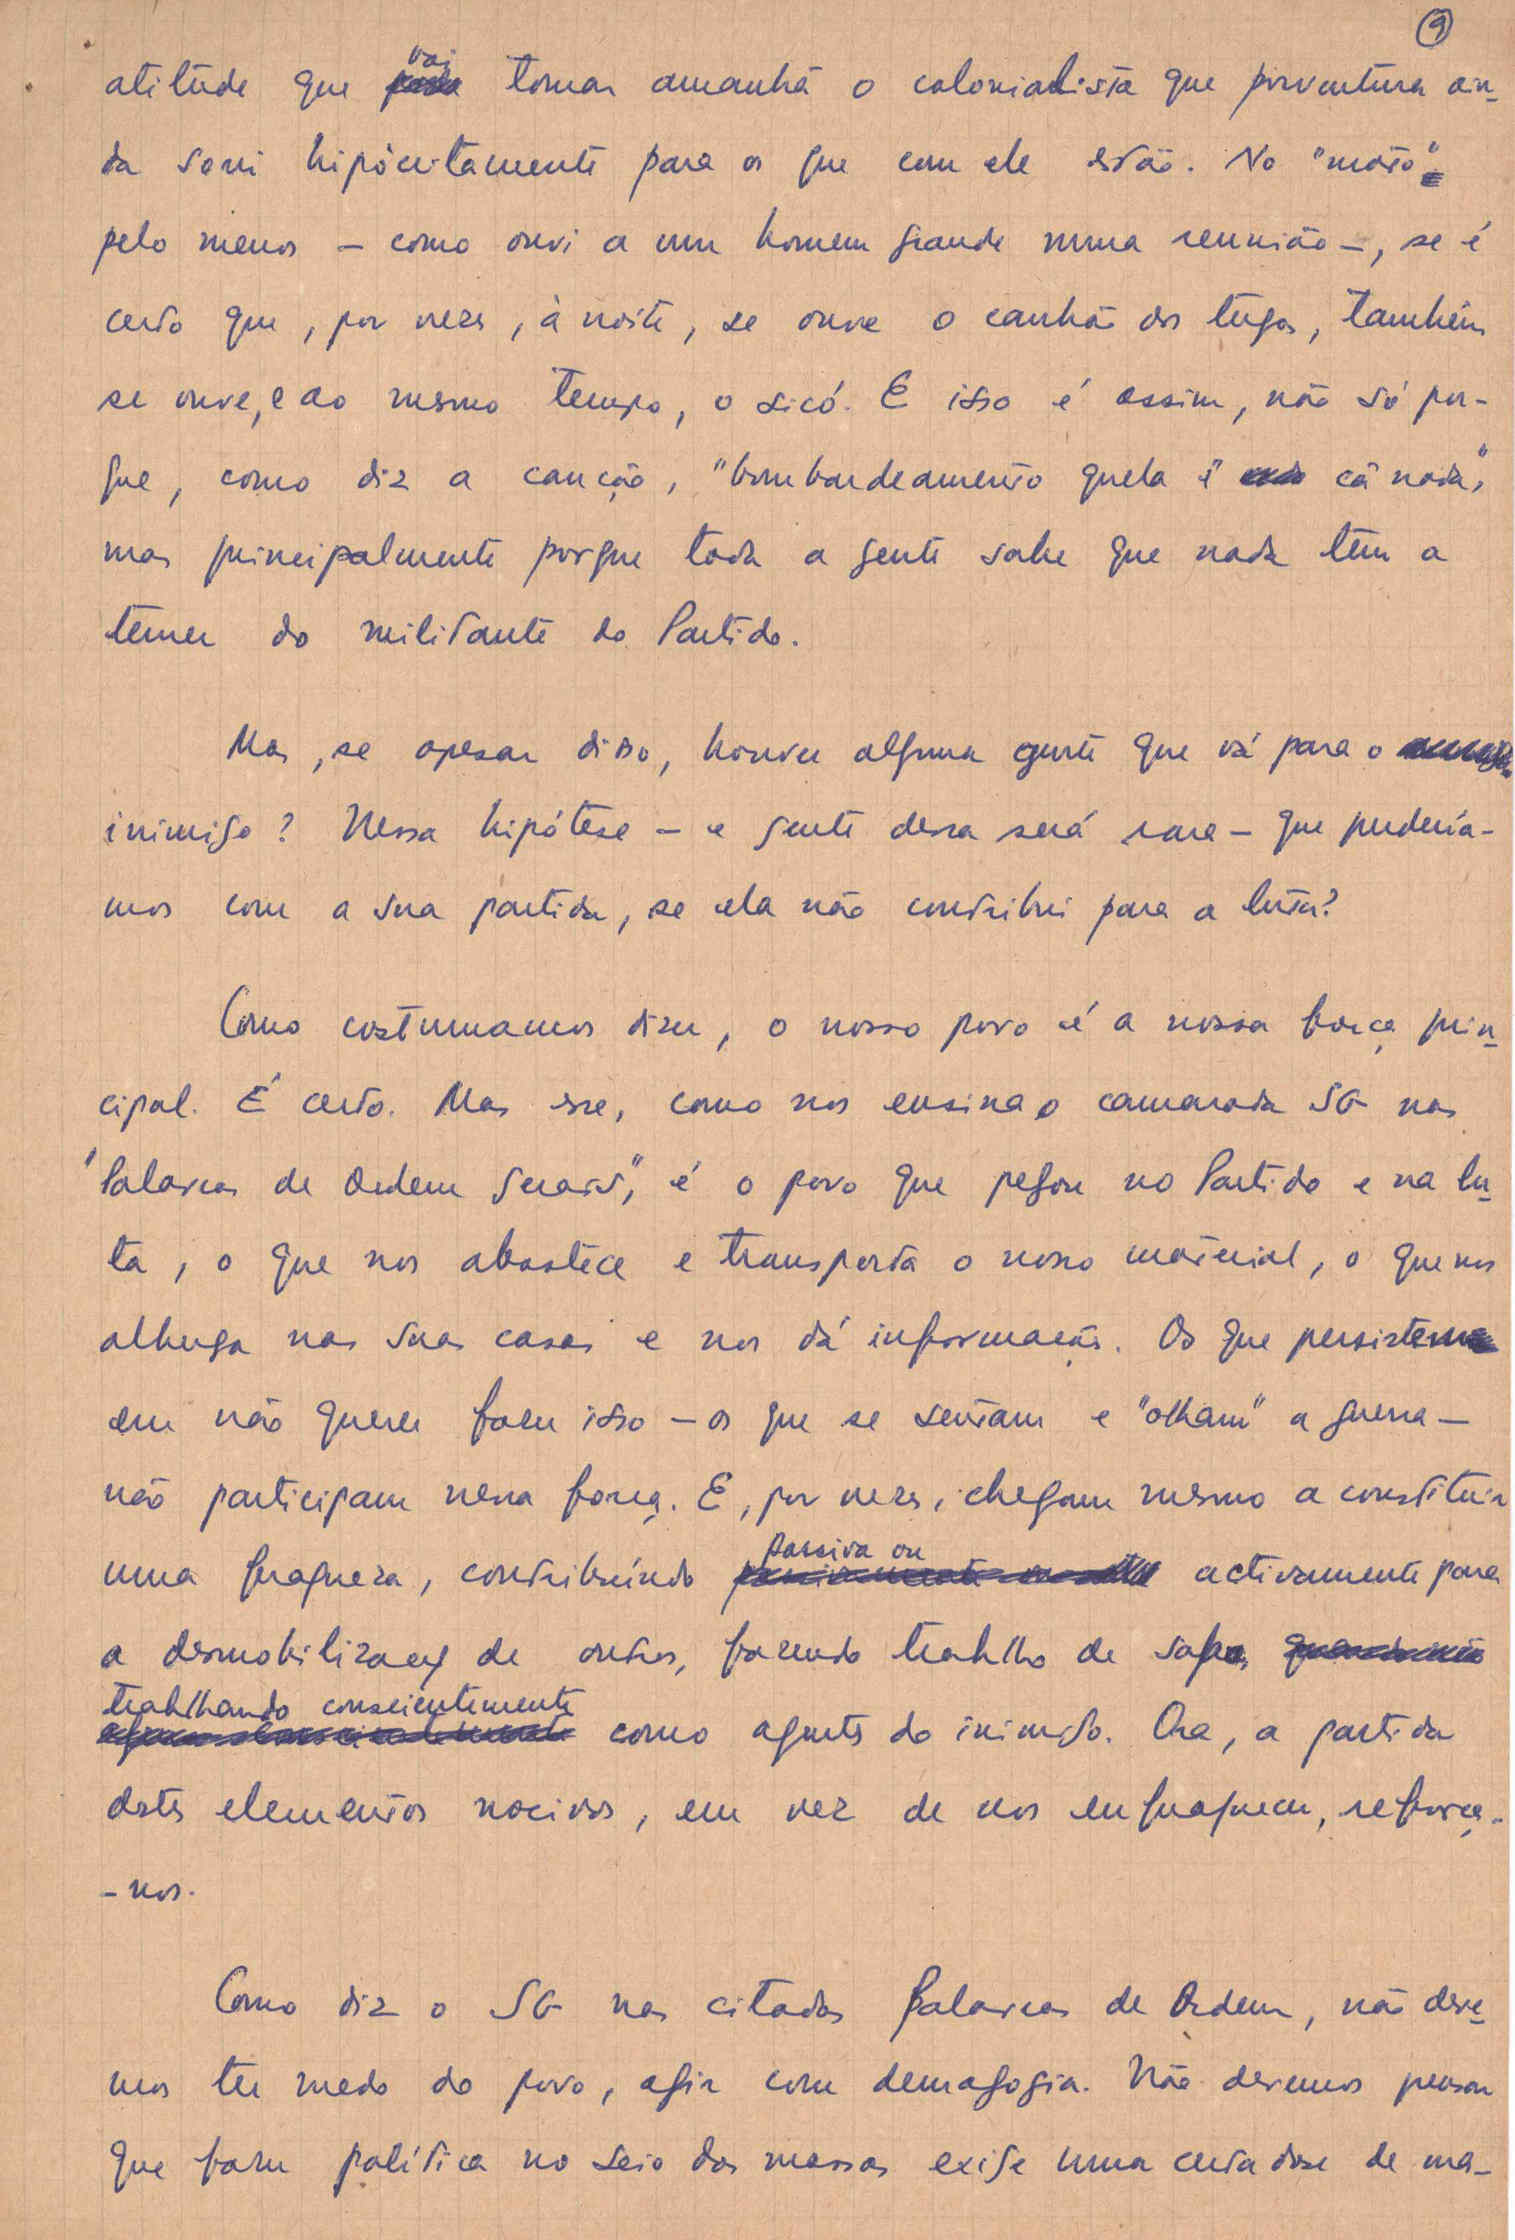 9
atitude que vai tomar amanhã o colonialista que porventura ain-
da sorri hipòcritamente para os que com ele estão. No "mato"
pelo menos – como ouvi a um homem grande numa reunião –, se é
certo que, por vezes, à noite, se ouve o canhão dos tugas, também
se ouve, e ao mesmo tempo, o sicó. E isso é assim, não só por-
que, como diz a canção, "bombardeamento quela i cá nada",
mas principalmente porque toda a gente sabe que nada tem a
temer do militante do Partido.
Mas, se apesar disso, houver alguma gente que vá para o
inimigo? Nessa hipótese – e gente dessa será rara – que perdería-
mos com a sua partida, se ela não contribui para a luta?
Como costumamos dizer, o nosso povo é a nossa força prin-
cipal. É certo. Mas esse, como nos ensina o camarada SG nas
"Palavras de Ordem Gerais", é o povo que pegou no Partido e na lu-
ta, o que nos abastece e transporta o nosso material, o que nos
alberga nas suas casas e nos dá informação. Os que persistem
em não querer fazer isso – os que se sentam e "olham" a guerra –
não participam nessa força. E, por vezes, chegam mesmo a constituir
uma fraqueza, contribuíndo passiva ou activamente para
a desmobilização de outros, fazendo trabalho de sapa,
trabalhando conscientemente como agentes do inimigo. Ora, a partida
destes elementos nocivos, em vez de nos enfraquecer, reforça-
-nos.
Como diz o SG nas citadas Palavras de Ordem, não deve-
mos ter medo do povo, agir com demagogia. Não devemos pensar
que fazer política no seio das massas exige uma certa dose de ma-